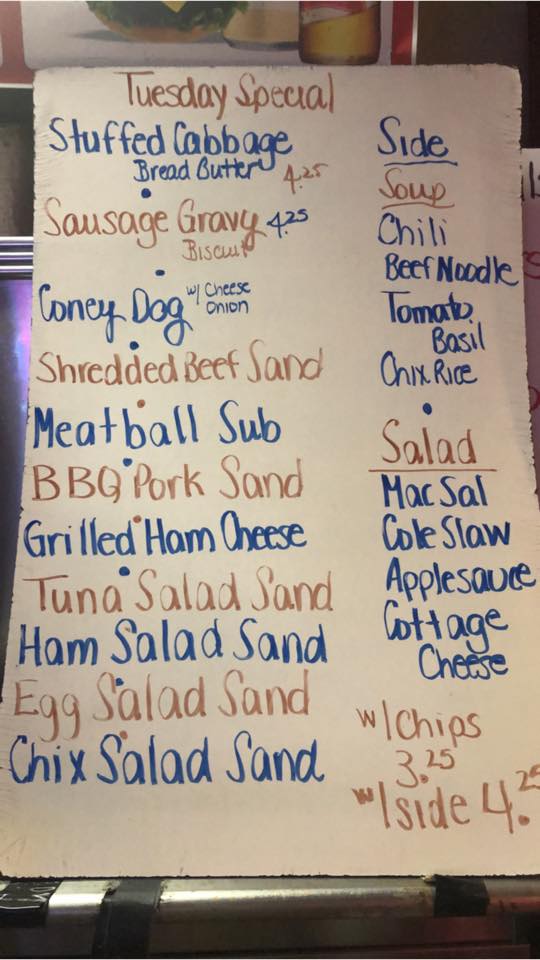 Tuesday Special
Stuffed Cabbage
Bread Butter 4.25
Sausage Gravy 4.25
Biscuit
Coney Dog w/ Cheese
Onion
Shredded Beef Sand
Meatball Sub
BBQ Pork Sand
Grilled Ham Cheese
Tuna Salad Sand
Ham Salad Sand
Egg Salad Sand
Chix Salad Sand
Side
Soup
Chili
Beef Noodle
Tomato
Basil
Chix Rice
Salad
Mac Sal
Cole Slaw
Applesauce
Cottage
Cheese
w/Chips
3.25
w/side 4.25